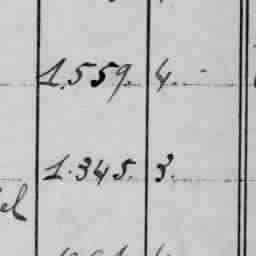 1.559. 4.
1.345. 3.
el